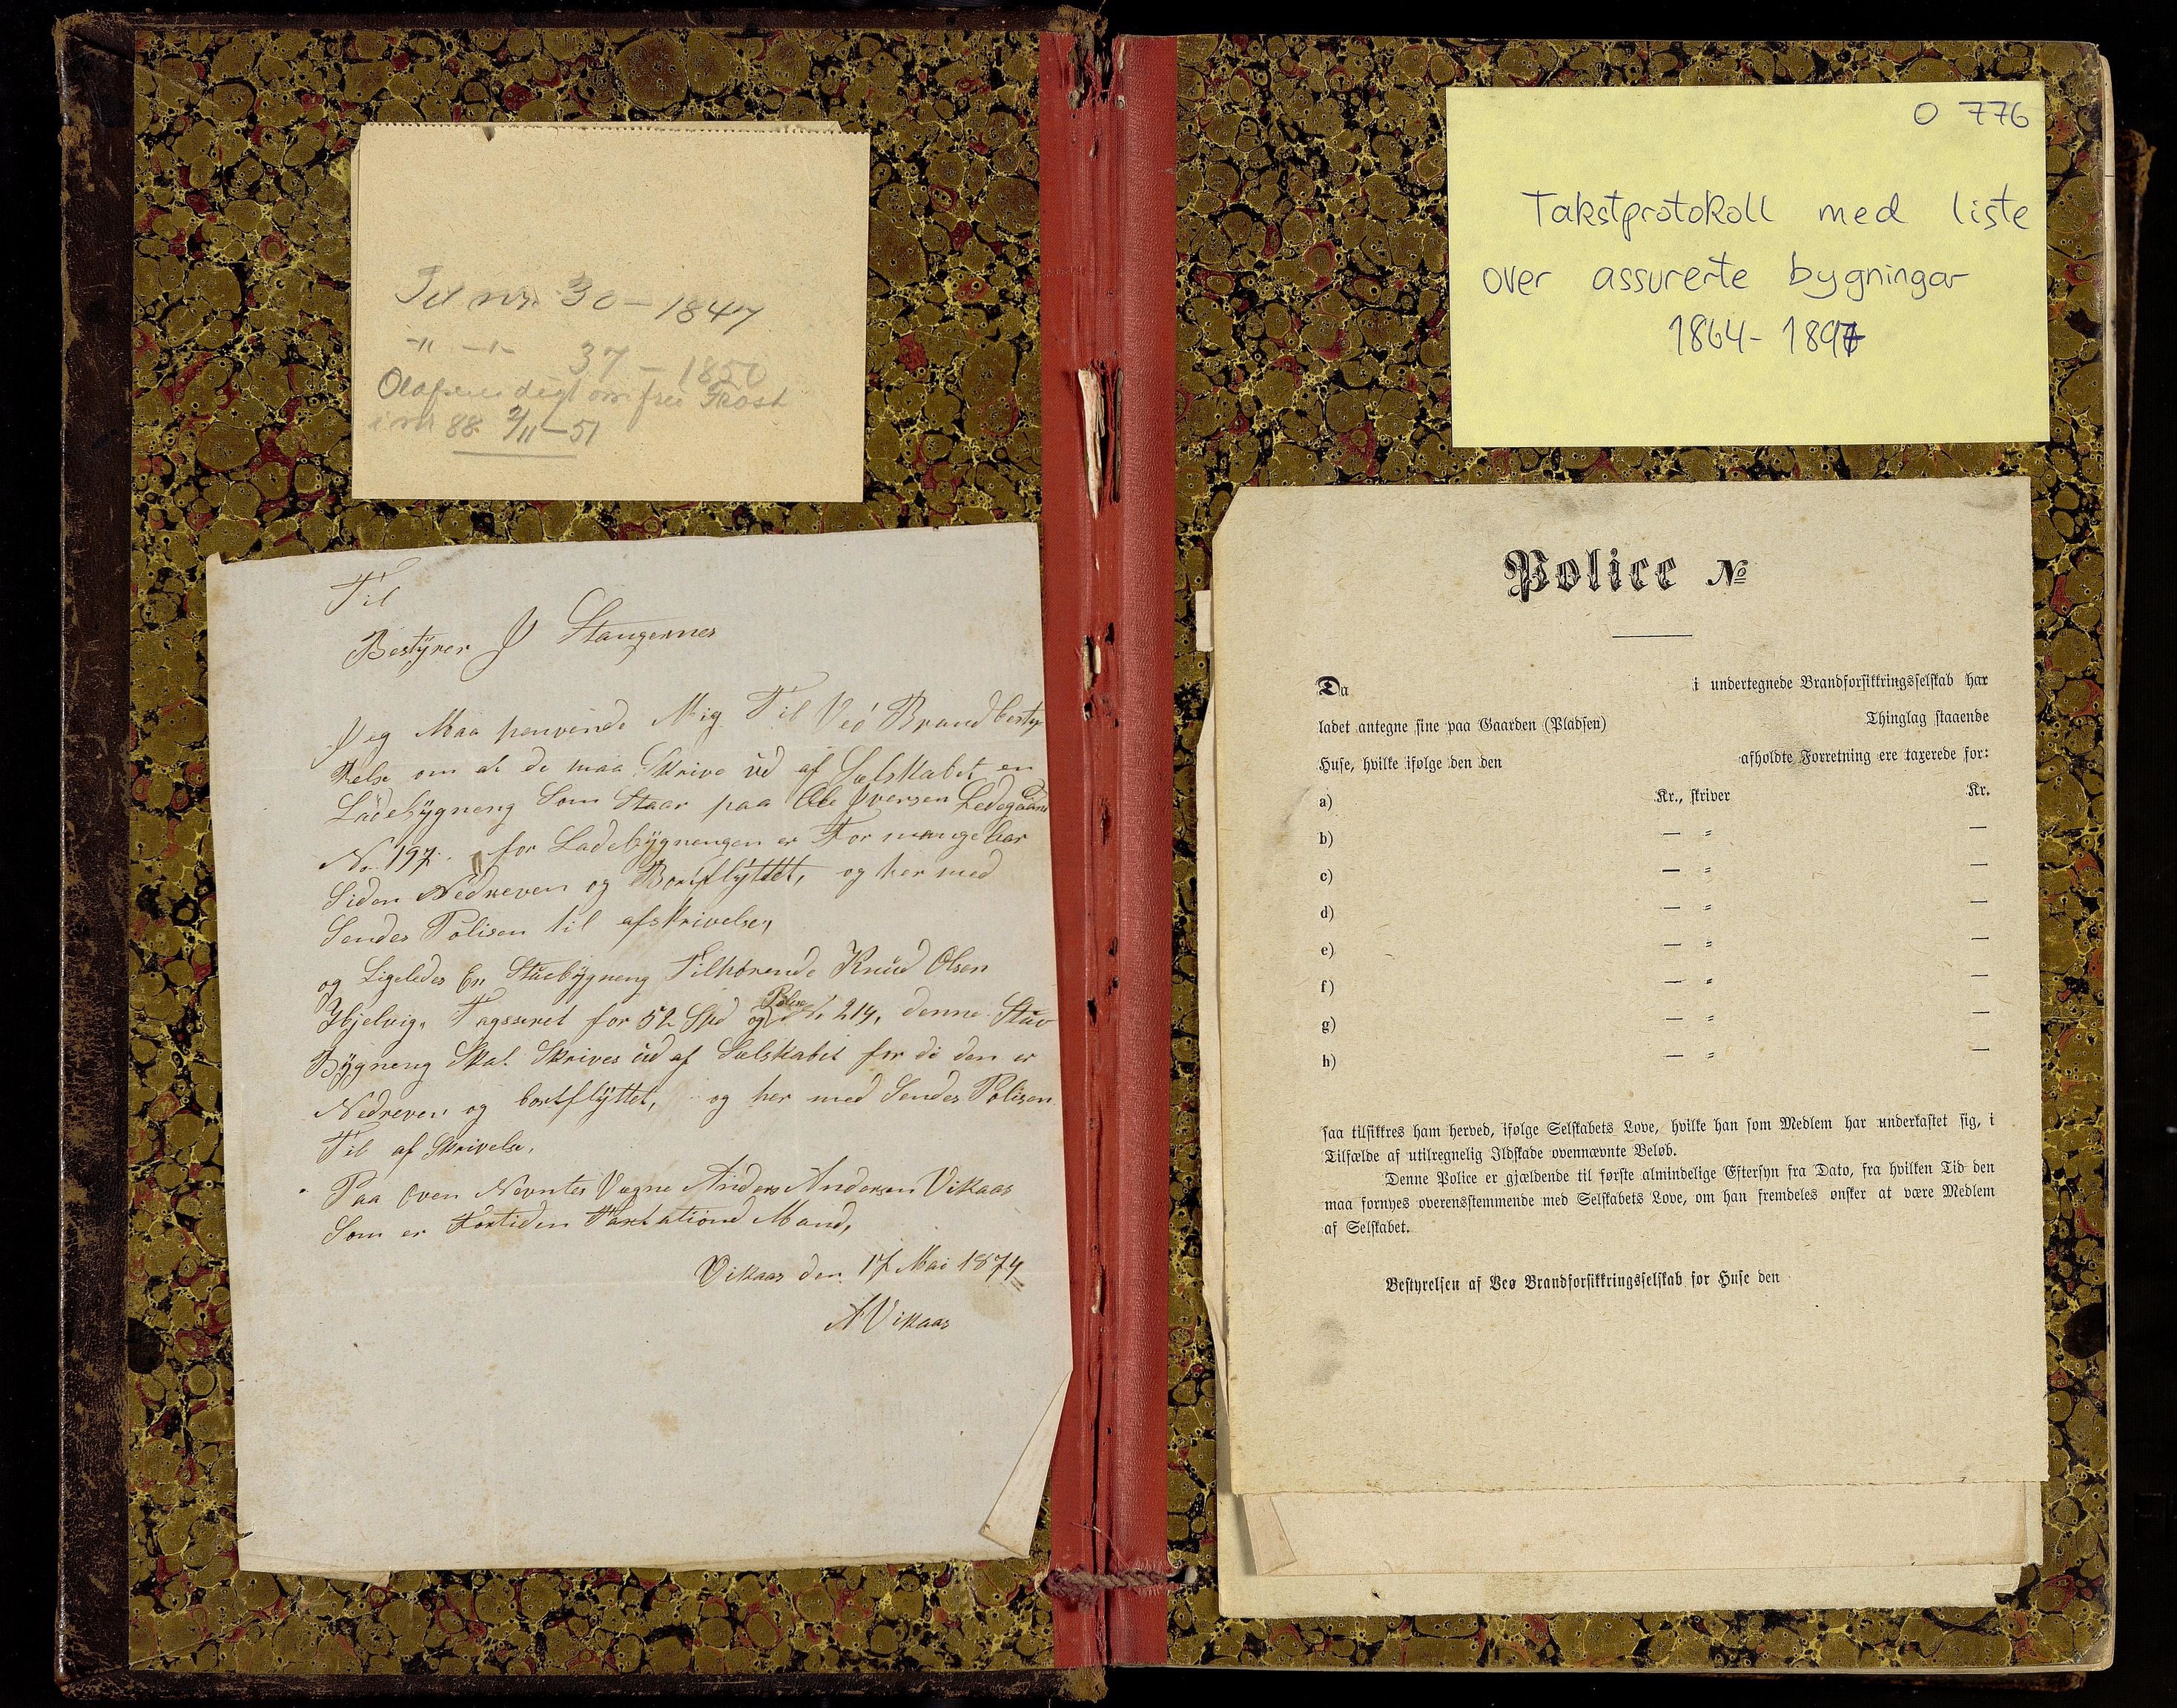 nr. 30 – 1847
37 – 1850
88 2/11 – 51
Til
Bestÿrer J Stangernes
Jeg Maa henvende Mig Til Veø Brandbesty
relse om at de maa Skrive ud af Selskabet en
Ladebÿgneng Som Staar paa Ole Iversen Ledegaard
No 197. for Ladebÿgnengen er For mange Aar
Siden Nedreven og Bortflÿttet, og her med
Sendes Polisen til afskrivelse,
og Ligeledes En Stuebÿgneng Tilhørende Knud Olsen
Hjelvig, Tagseret for 52 Spd og Polise No 214, denne Stue
Bÿgneng Skal Skrives ud af Selskabet for di den er
Nedreven og bortflÿttet, og her med Sendes Polisen
Til af Skrivelse,
Paa Oven Nevntes Vegne Anders Andersen Vikaas
Som er Fortiden Taxtations Mand,
Vikaas den 17 Mai 1874
A Vikaas
O 776
Takstprotokoll med liste
over assurerte bygningar
1864 - 1897
Police No
Da i undertegnede Brandforsikkringsselskab har
ladet antegne sine paa Gaarden (Pladsen) Thinglag staaende
Huse, hvilke ifølge den den afholdte Forretning ere taxerede for:
a) Kr., skriver Kr.
b) — " —
c) — " —
d) — " —
e) — " —
f) — " —
g) — " —
h) — " —
saa tilsikkres ham herved, ifølge Selskabets Love, hvilke han som Medlem har underkastet sig, i
Tilfælde af utilregnelig Ildskade ovennævnte Beløb.
Denne Police er gjældende til første almindelige Eftersyn fra Dato, fra hvilken Tid den
maa fornyes overensstemmende med Selskabets Love, om han fremdeles ønsker at være Medlem
af Selskabet.
Bestyrelsen af Veø Brandforsikkringsselskab for Huse den